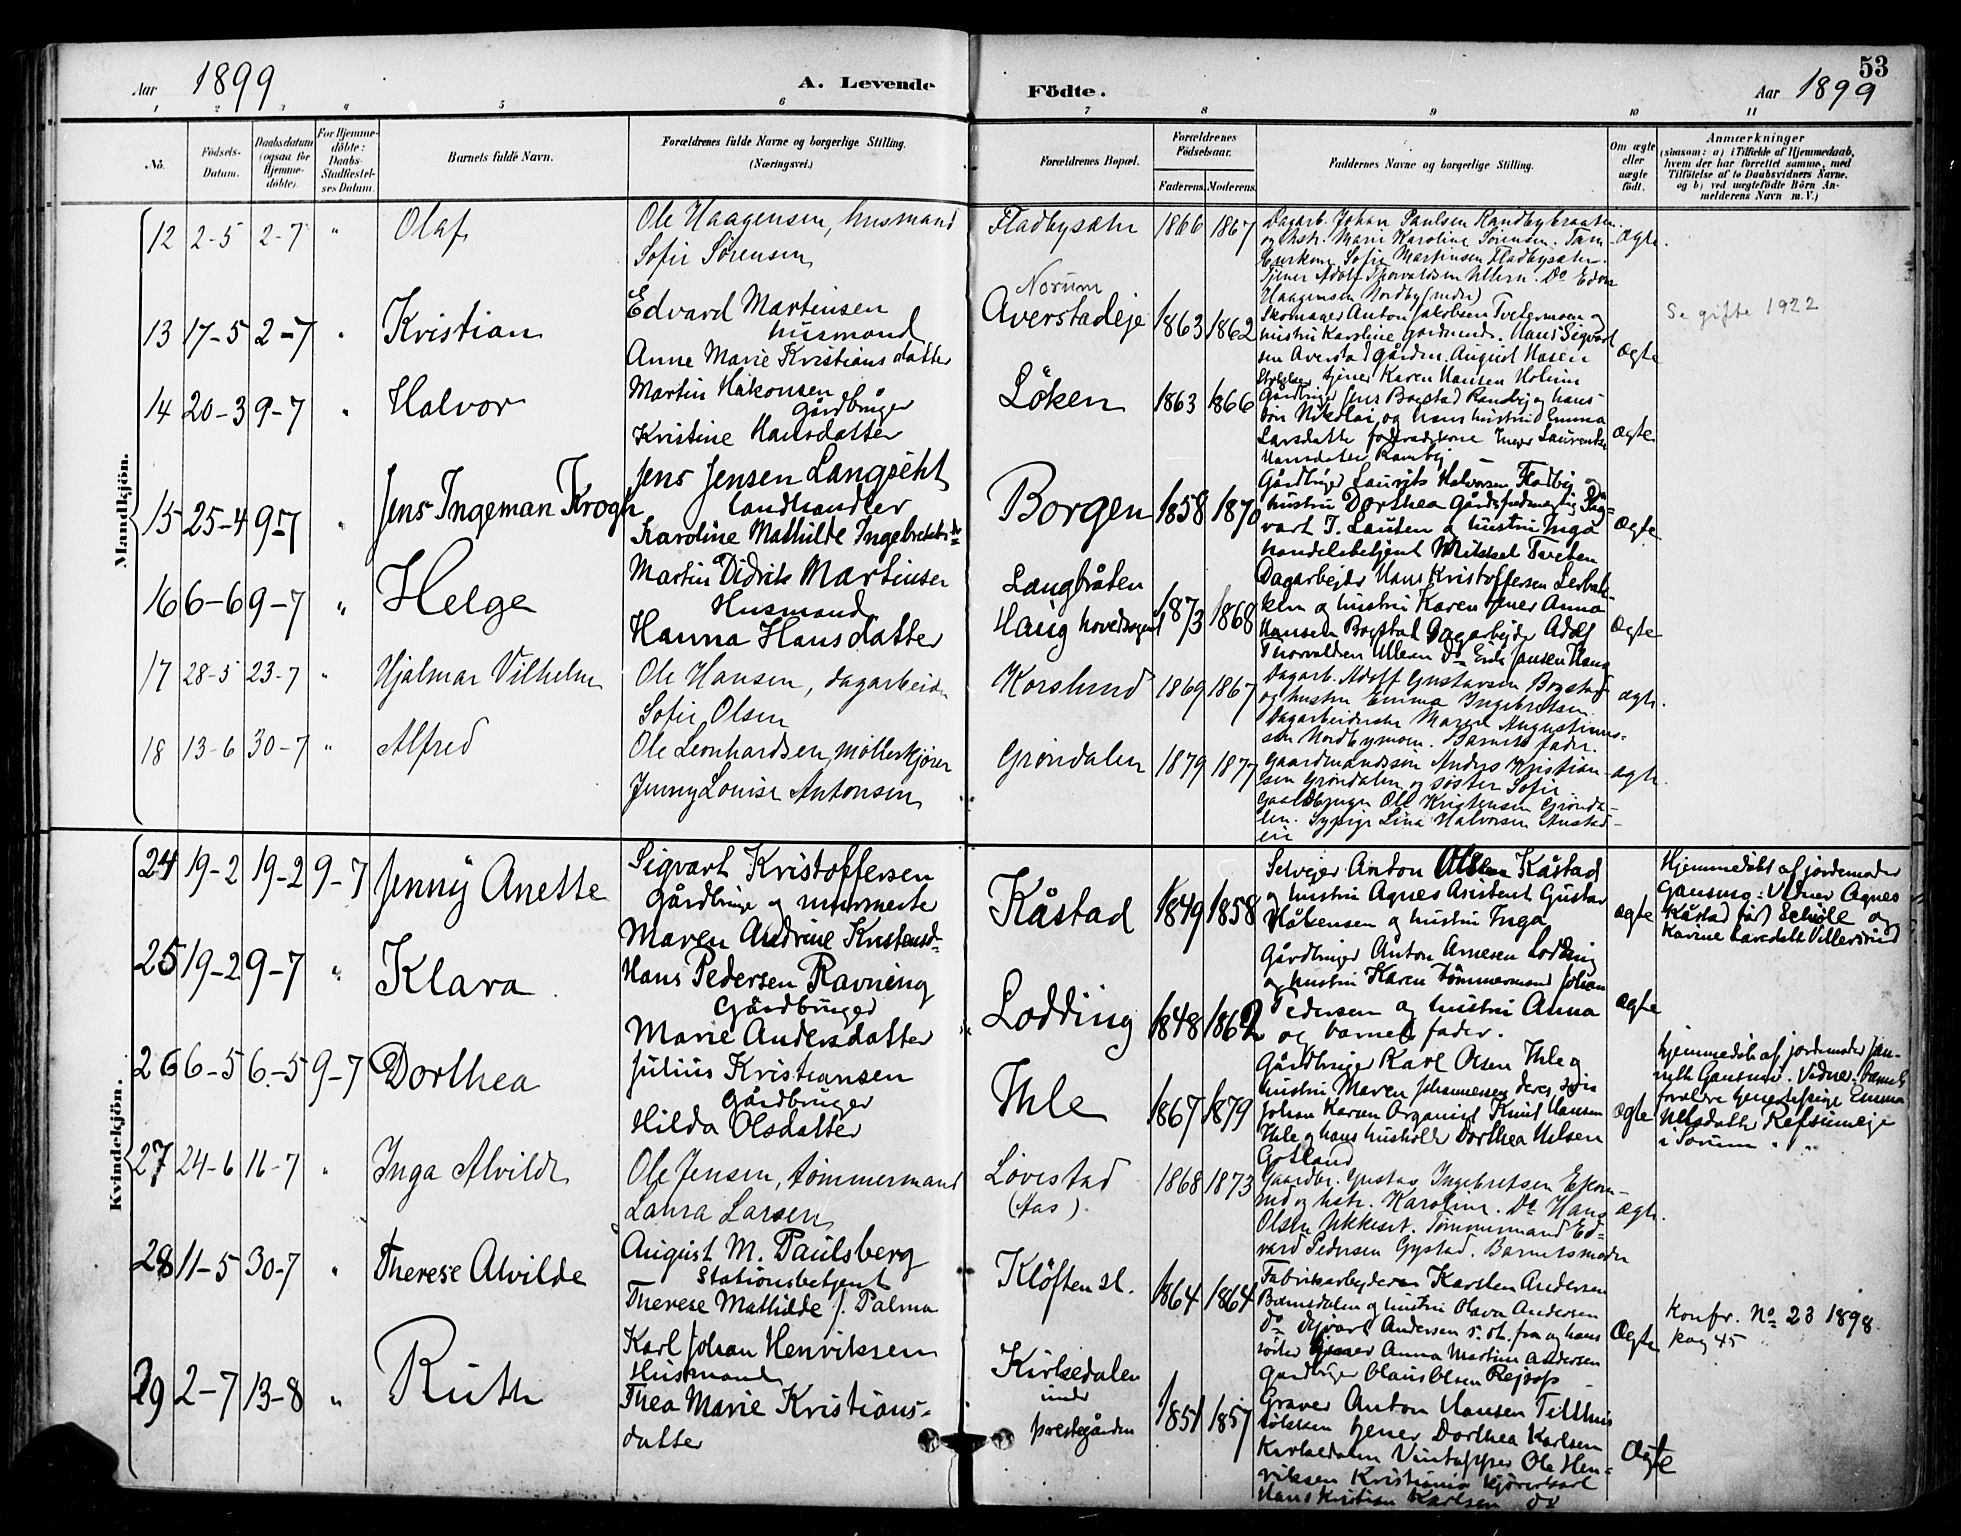 53
Aar 1899 A. Levende Födte. Aar 1899
1 2 3 4 5 6 7 8 9 10 11
No.
Födsels-Datum.
Daabsdatum (ogsaa for Hjemme-döbte).
For Hjemme-döbte: Daabs-Stadfæstel-ses Datum.
Barnets fulde Navn.
Forældrenes fulde Navne og borgerlige Stilling.
(Næringsvei.)
Forældrenes Bopæl.
Forældrenes Födselsaar.
Faderens. Moderens.
Faddernes Navne og borgerlige Stilling.
Om ægte eller uægte födt.
Anmærkninger
(saasom: a) i Tilfælde af Hjemmedaab,
hvem der har forrettet samme, med
Tilföielse af to Daabsvidners Navne.
og b) ved uægtefödte Börn An-
melderens Navn m. V.)
Mandkjön.
12 2-5 2-7 " Olaf
Ole Haagensen, husmand
Sofie Sørensen
Fladbysæter 1866 1867
Dagarb. Johan Paulsen Randbybraaten
og hstr. Marie Karoline Sørensen.
Sofie Martinsen Fladbysæter.
Tjener Adolf Thorvaldsen Ullern. Do
Haagensen Nordby (nedre)
ægte.
13 17-5 2-7 " Kristian
Edvard Martinsen
husmand
Anne Marie Kristiansdatter
Norum
Averstadeje 1863 1862
Skomager Anton Jakobsen Tvetermoen og
hustru Karoline Gårdmands. Hans Sigvart
sen Averstad gården. August Hasen
tjener Karen Hansen Holum
ægte
Se gifte 1922
14 20-3 9-7 " Halvor
Martin Håkonsen
Gårdbruger
Kristine Hansdatter
Løken 1863 1866
Gårdbruger Jens Bogstad Randby og hans
søn Nikolai og hans hustru Emma
Larsdatter Inger Laurentse
Hansdatter Randby
ægte
15 25-4 9-7 " Jens Ingeman Krogh
Jens Jensen Langseht
Landhandler
Karoline Mathilde Ingebretsdr
Borgen 1858 1870
Gårdbruger Laurits Halvorsen Fladby og
hustru Dorthea
vart J. Lauten og hustru Inga
handelsbetjent Mikkel Tveten
ægte
16 6-6 9-7 " Helge
Martin Didrik Martinsen
Husmand
Hanna Hansdatter
Langbråten
Haug hovedsogn 1873 1868
Dagarbejder Hans Kristoffersen Lerbak-
ken og hustru Karen tjener Anna
Hansen Bogstad Dagarbejder Adolf
Thorvaldsen Ullern Do Erik Jensen Haug
ægte
17 28-5 23-7 " Hjalmar Vilhelm
Ole Hansen, dagarbeider
Sofie Olsen
Korslund 1869 1867
Dagarb. Adolf Gustavsen Bogstad
og hustru Emma Ingebretsen.
Dagarbeiderske Maren Augustinus-
sen Nordbymoen. Barnets fader.
ægte.
18 13-6 30-7 " Alfred
Ole Leonhardsen, møllerkjører
Jenny Louise Antonsen
Grøndalen 1879 1877
Gaardmandssøn Anders Kristian-
sen Grøndalen og søster Sofie
Gaardbruger Ole Kristensen Grønda-
len. Sypige Lina Halvorsen Anstad-
eie
ægte.
Kvindekjön.
24 19-2 19-2 9-7 Jenny Anette
Sigvart Kristoffersen
Gårdbruger og murmester
Maren Andrine Kristensdr
Kåstad 1849 1858
Selvejer Anton Olsen Kåstad
og hustru Agnes Assistent Gustav
Håkensen og hustru Inga
ægte
Hjemmedøbt af jordemoder
Gansmo: Vidner Agnes
Kåstad født Schøle og
Karine Larsdatt
25 19-2 9-7 " Klara
Hans Pedersen Ravning
Gårdbruger
Marie Andersdatter
Lodding 1848 1862
Gårdbruger Anton Arnesen Lodding
og hustru Karen Tømmermand Johan
Pedersen og hustru Anna
og barnets fader.
ægte
26 6-5 6-5 9-7 Dorthea
Julius Kristiansen
Gårdbruger
Hilda Olsdatter
Ihle 1867 1879
Gårdbruger Karl Olsen Ihle og
hustru Maren Johannesen deres søn
Johan Karen Organist Knut Hansen
Ihle og hans husholder Dorthea Nilsen
Gotland
ægte
hjemmedøbt af jordemoder Jan-
nette Gansmo. Vidner: barnets
forældre tjenestepige Emma
Nilsdatter Refsumeje
i Sørum " "
27 24-6 16-7 " Inga Alvilde
Ole Jensen, tømmermand
Laura Larsen
Løvestad
(Aas). 1868 1873
Gaardbr. Gustav Ingebretsen Ekorn-
rud og hstr. Karoline. Do Hans
Olsen Ukkeset. Tømmermand Ed-
vard Pedersen Gystad. Barnets moder
ægte.
28 11-5 30-7 " Therese Alvilde
August M. Paulsberg
Stationsbetjent
Therese Mathilde f. Palma
Kløften st. 1864 1864
Fabriksarbejderen Karsten Andersen
og hustru Olava Andersen
Do Andersen s. st. fra og hans
søster tjener Anna Martine Andersen
Gårdbruger Olaus Olsen
Ægte
Konfr. No 23 1898.
pag 45
29 2-7 13-8 " Ruth
Karl Johan Henriksen
Husmand
Thea Marie Kristians-
datter
Kirkedalen
under
prestegården 1851 1857
Graver Anton Hansen
tjener Dorthea Karlsen
Kirkedalen Vintapper Ole Hen-
riksen Kristiania kjørerkarl
Hans Kristian Karlsen do
Ægte